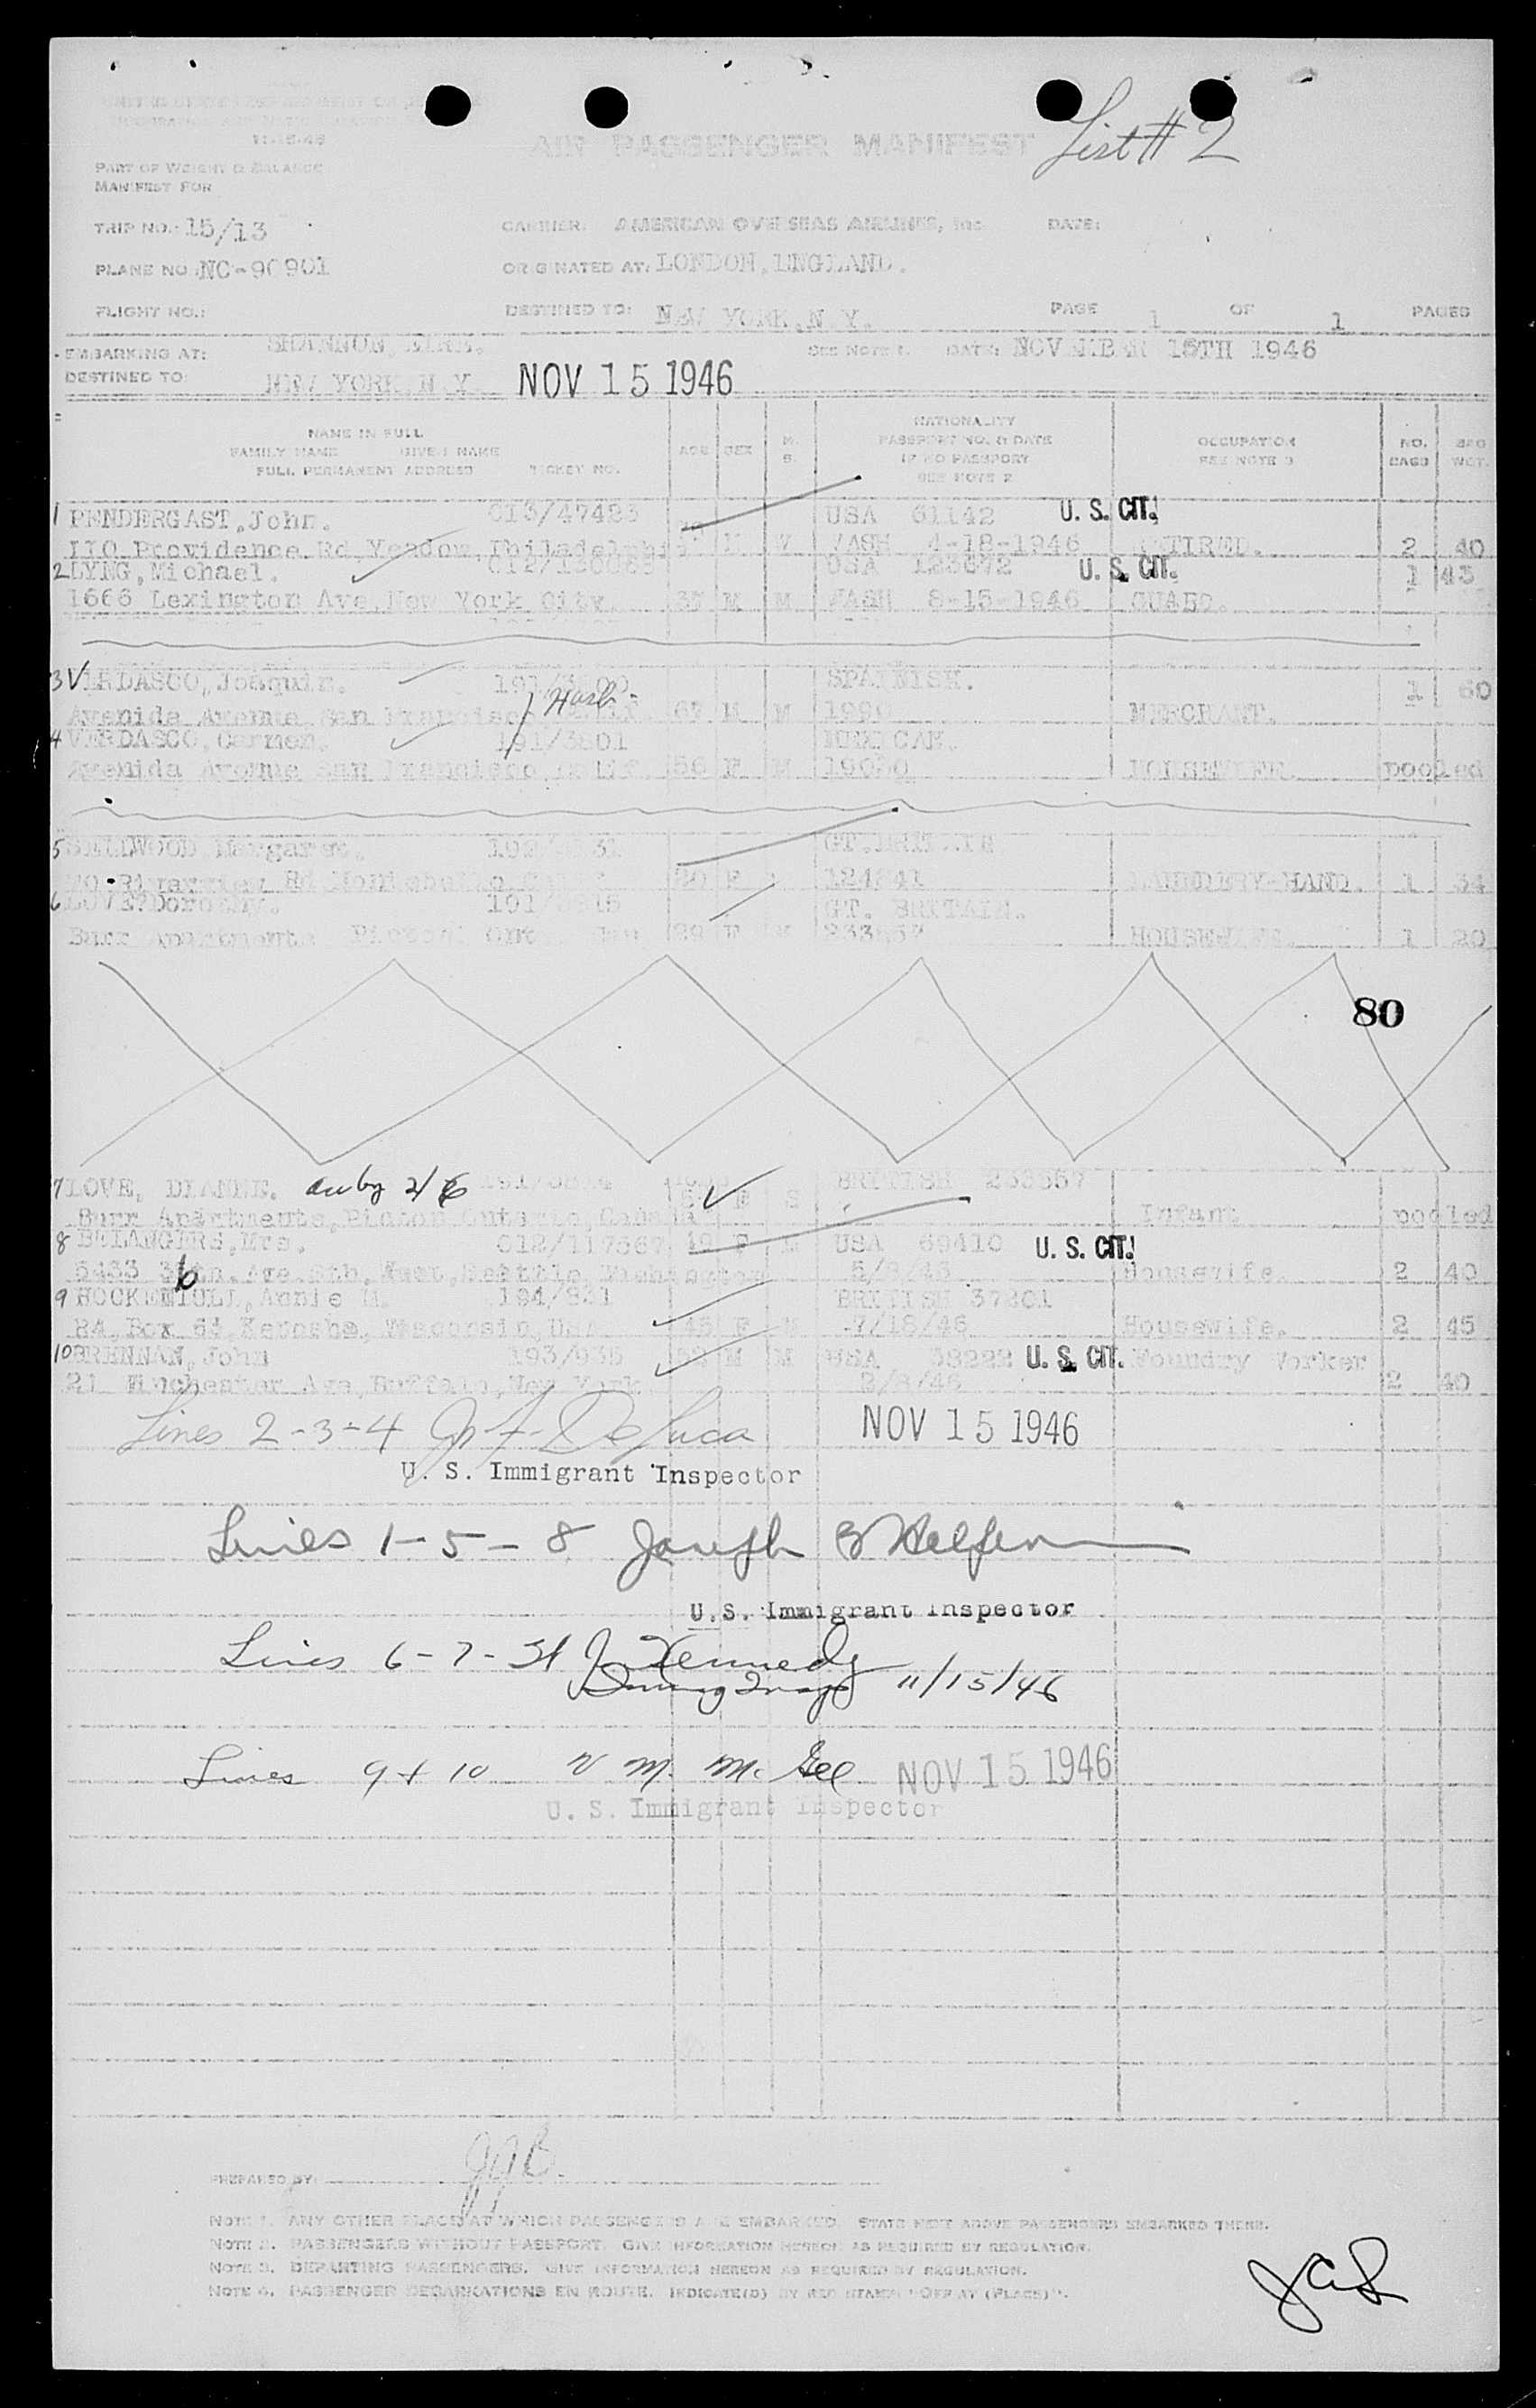 List # 2
AIR PASSENGER MANIFEST
11-15-46
PART OF WEIGHT & BALANCE
MANIFEST FOR
TRIP NO.: 15/13 CARRIER: AMERICAN OVERSEAS AIRLINES, Inc. DATE:
PLANE NO. NC-90901 ORIGINATED AT: LONDON, ENGLAND.
FLIGHT NO.: DESTINED TO: NEW YORK, N.Y. PAGE 1 OF 1 PAGES
EMBARKING AT: SHANNON, EIRE. SEE NOTE 1. DATE: NOVEMBER 15TH 1946
DESTINED TO: NEW YORK, N.Y. NOV 15 1946
NAME IN FULL
FAMILY NAME GIVEN NAME
FULL PERMANENT ADDRESS TICKET NO.
AGE SEX M. S.
NATIONALITY
PASSPORT NO. & DATE
IF NO PASSPORT
SEE NOTE 2
OCCUPATION
SEE NOTE 3
NO. BAGS BAG WGT.
1 PENDERGAST, John. 013/47423 USA 61142 U. S. CIT.
110 Providence Rd Yeadon, Philadelphia WASH 4-18-1946 RETIRED. 2 40
2 LYNG, Michael. USA 123672 U. S. CIT. 1 43
1666 Lexington Ave, New York City. M M WASH 8-15-1946 GUARD.
3 VERDASCO, Joaquin. SPANISH. 1 60
Avenida San Francisco M M MERCHANT.
4 VERDASCO, Carmen. 191/3801 MEXICAN.
Avenida San Francisco 56 F M HOUSEWIFE. pooled
5 Margaret. GT. BRITAIN
F LAUNDRY-HAND. 1 34
6 LOVE? Dorothy. GT. BRITAIN.
Burr Apartments Picton Ont 29 F M HOUSEWIFE. 1 20
80
7 LOVE, DIANNE. BRITISH 233557
Burr Apartments, Picton Ontario, Canada F S Infant pooled
8 BELANGERS, Mrs. 012/117567 F M USA 69410 U. S. CIT.
West, Seattle, Washington Housewife. 2 40
9 Annie M. 194/931 BRITISH 37201
R4, Box 64, Kenosha, Wisconsin, USA 45 F M 7/18/46 Housewife. 2 45
10 BRENNAN, John 193/935 52 M M USA 38222 U. S. CIT. Foundry Worker
21 Winchester Ave, Buffalo, New York 2/8/46 2 40
Lines 2-3-4 De Luca NOV 15 1946
U. S. Immigrant Inspector
Lines 1-5-8 Joseph B Halfern
U.S. Immigrant Inspector
Lines 6-7- J. Kennedy
11/15/46
Lines 9 + 10 M. McGee NOV 15 1946
U. S. Immigrant Inspector
PREPARED BY: JJB.
NOTE 1. ANY OTHER PLACES AT WHICH PASSENGERS ARE EMBARKED. STATE NEXT ABOVE PASSENGERS EMBARKED THERE.
NOTE 2. PASSENGERS WITHOUT PASSPORT. GIVE INFORMATION HEREON AS REQUIRED BY REGULATION.
NOTE 3. DEPARTING PASSENGERS. GIVE INFORMATION HEREON AS REQUIRED BY REGULATION.
NOTE 4. PASSENGER DEBARKATIONS EN ROUTE. INDICATE(D) BY RED STAMP "OFF AT (PLACE)".